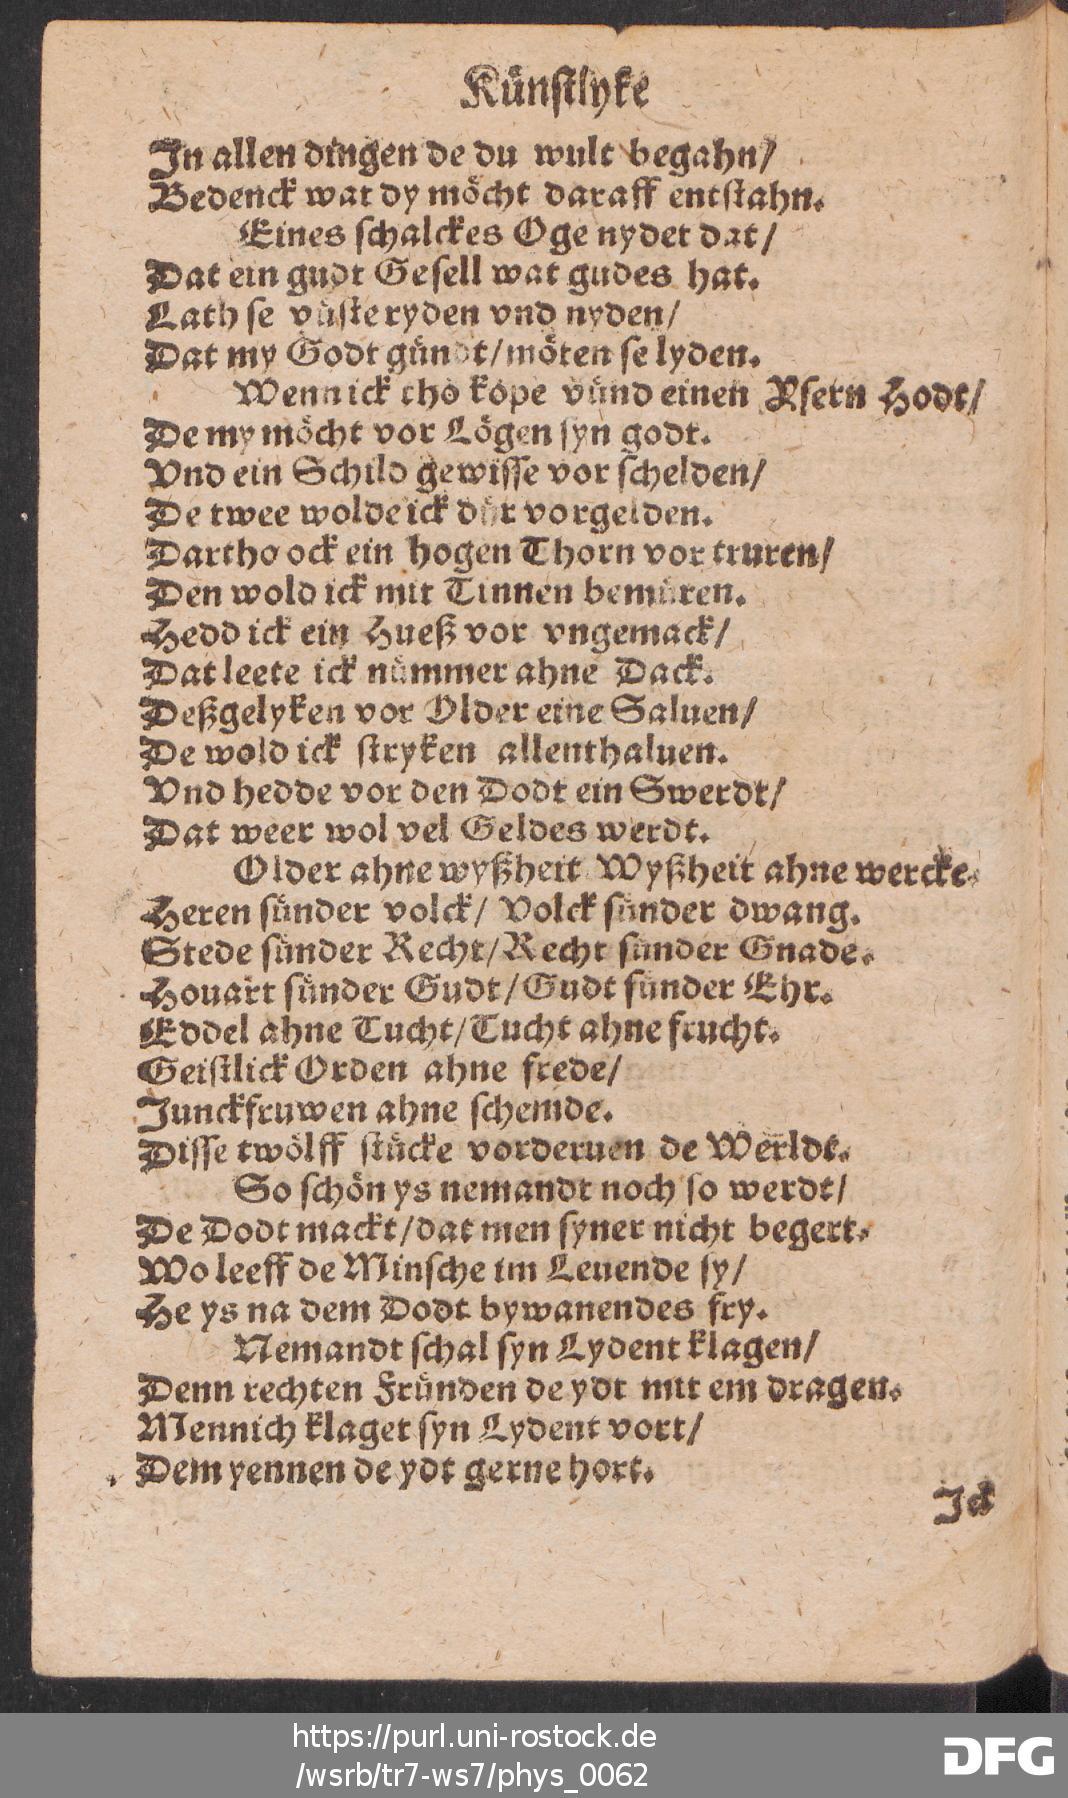 Künstlyke
In allen dingen de du wult begahn/
Bedenck wat dy möcht daraff entstahn.
Eines schalckes Oge nydet dat/
Dat ein gudt Gesell wat gudes hat.
Lath se vüste ryden vnd nyden/
Dat my Godt gündt/möten se lyden.
Wenn ick tho kope vünd einen Ysern Hodt/
De my möcht vor Lögen syn godt.
Vnd ein Schild gewisse vor schelden/
De twee wolde ick dür vorgelden.
Dartho ock ein hogen Thorn vor truren/
Den wold ick mit Tinnen bemüren.
Hedd ick ein Hueß vor vngemack/
Dat leete ick nümmer ahne Dack.
Deßgelyken vor Older eine Saluen/
De wold ick stryken allenthaluen.
Vnd hedde vor den Dodt ein Swerdt/
Dat weer wol vel Geldes werdt.
Older ahne wyßheit Wyßheit ahne wercke.
Heren sünder volck/ Volck sünder dwang.
Stede sünder Recht/Recht sünder Gnade.
Houart sünder Gudt/Gudt sünder Ehr.
Eddel ahne Tucht/Tucht ahne frucht.
Geistlick Orden ahne frede/
Junckfruwen ahne schemde.
Disse twölff stücke vorderuen de Werldt.
So schön ys nemandt noch so werdt/
De Dodt mackt/dat men syner nicht begert.
Wo leeff de Minsche im Leuende sy/
He ys na dem Dodt bywanendes fry.
Nemandt schal syn Lydent klagen/
Denn rechten Fründen de ydt mit em dragen.
Mennich klaget syn Lydent vort/
Dem yennen de ydt gerne hort.
Ick
https://purl.uni-rostock.de
/wsrb/tr7-ws7/phys_0062
DFG